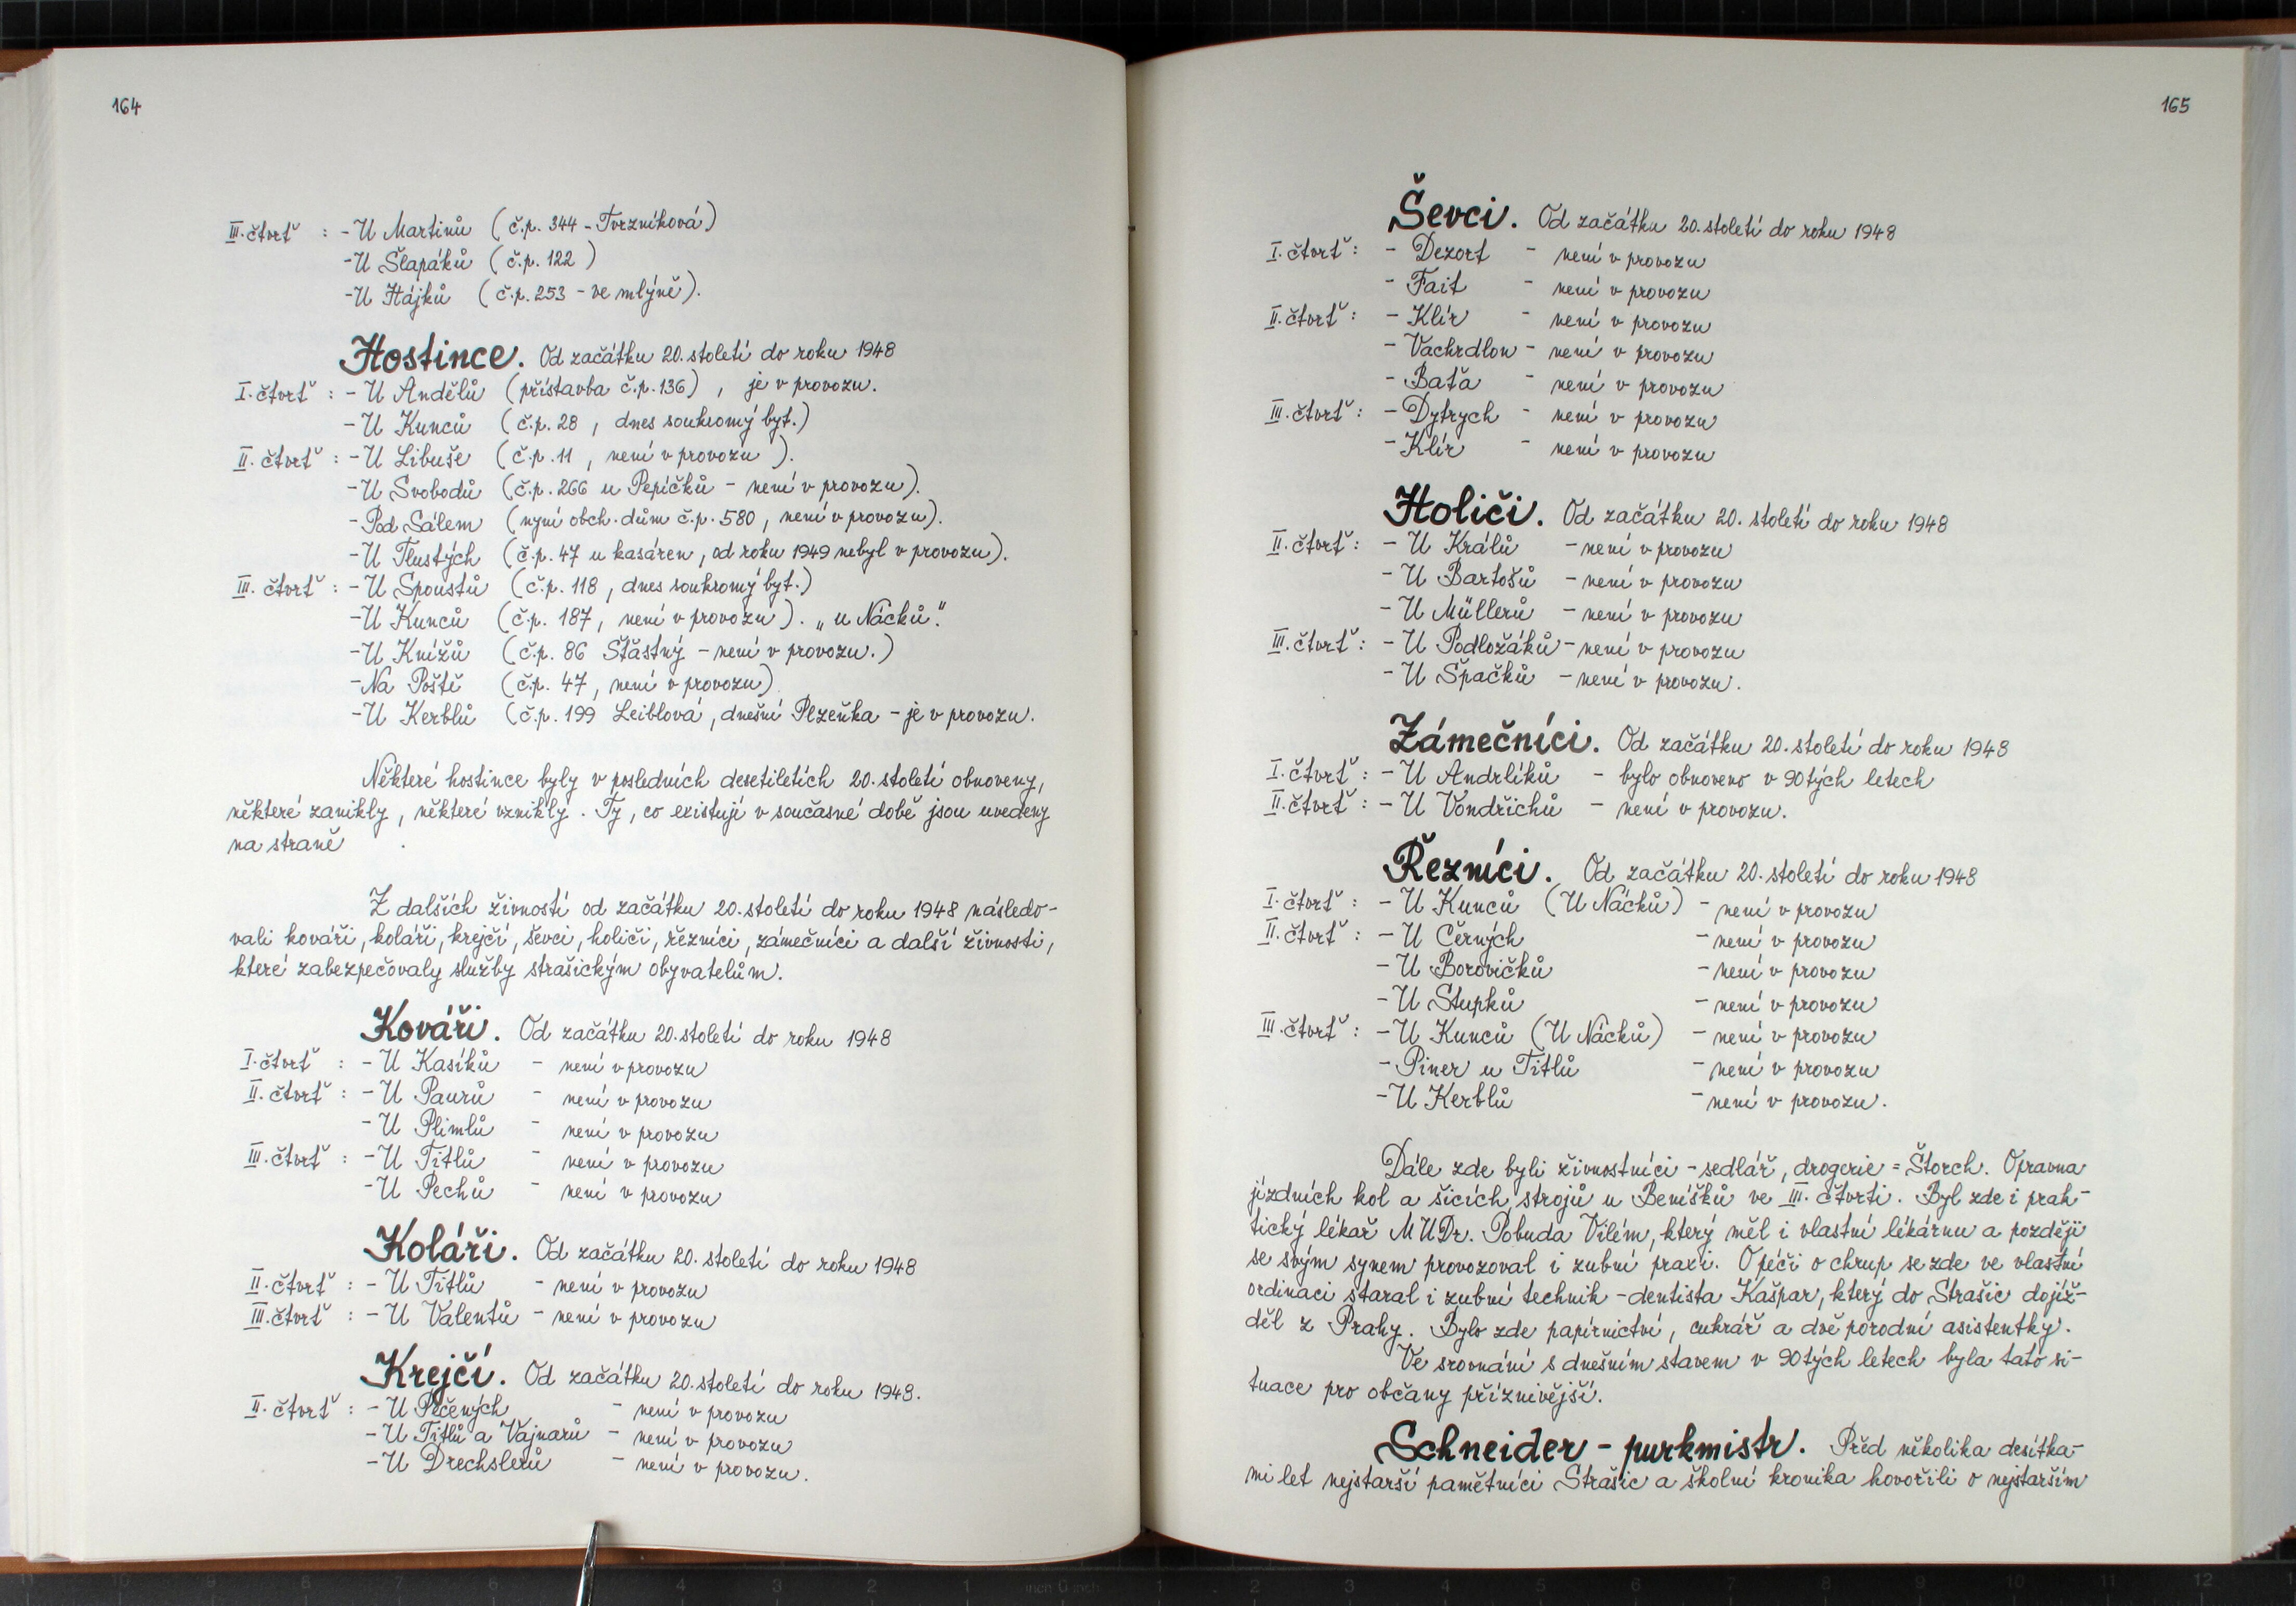 164
III. čtvrť : - U Martinů (č.p. 344 - Tvrzníková)
- U Šlapáků (č.p. 122)
- U Hájků (č.p. 253 - ve mlýně).
Hostince. Od začátku 20. století do roku 1948
I. čtvrť : - U Andělů (přístavba č.p. 136), je v provozu.
- U Kunců (č.p. 28, dnes soukromý byt.)
II. čtvrť : - U Libuše (č.p. 11, není v provozu).
- U Svobodů (č.p. 266 u Pepíčků - není v provozu).
- Pod Sálem (nyní obch. dům č.p. 580, není v provozu).
- U Tlustých (č.p. 47 u kasáren, od roku 1949 nebyl v provozu).
III. čtvrť : - U Spoustů (č.p. 118, dnes soukromý byt.)
- U Kunců (č.p. 187, není v provozu). „u Nácků".
- U Knížů (č.p. 86 Šťastný - není v provozu.)
- Na Poště (č.p. 47, není v provozu)
- U Kerblů (č.p. 199 Leiblová, dnešní Plzeňka - je v provozu.
Některé hostince byly v posledních desetiletích 20. století obnoveny,
některé zanikly, některé vznikly. Ty, co existují v současné době jsou uvedeny
na straně .
Z dalších živností od začátku 20. století do roku 1948 následo-
vali kováři, koláři, krejčí, ševci, holiči, řezníci, zámečníci a další živnosti,
které zabezpečovaly služby strašickým obyvatelům.
Kováři. Od začátku 20. století do roku 1948
I. čtvrť : - U Kasíků - není v provozu
II. čtvrť : - U Paurů - není v provozu
- U Plimlů - není v provozu
III. čtvrť : - U Titlů - není v provozu
- U Pechů - není v provozu
Koláři. Od začátku 20. století do roku 1948
II. čtvrť : - U Titlů - není v provozu
III. čtvrť : - U Valentů - není v provozu
Krejčí. Od začátku 20. století do roku 1948.
II. čtvrť : - U Pečených - není v provozu
- U Titlů a Vajnarů - není v provozu
- U Drechslerů - není v provozu.
165
Ševci. Od začátku 20. století do roku 1948
I. čtvrť : - Dezort - není v provozu
- Fait - není v provozu
II. čtvrť : - Klír - není v provozu
- Vachrdlon - není v provozu
- Baťa - není v provozu
III. čtvrť : - Dytrych - není v provozu
- Klír - není v provozu
Holiči. Od začátku 20. století do roku 1948
II. čtvrť : - U Králů - není v provozu
- U Bartošů - není v provozu
- U Müllerů - není v provozu
III. čtvrť : - U Podložáků - není v provozu
- U Špačků - není v provozu.
Zámečníci. Od začátku 20. století do roku 1948
I. čtvrť : - U Andrlíků - bylo obnoveno v 90tých letech
II. čtvrť : - U Vondřichů - není v provozu.
Řezníci. Od začátku 20. století do roku 1948
I. čtvrť : - U Kunců (U Nácků) - není v provozu
II. čtvrť : - U Černých - není v provozu
- U Borovičků - není v provozu
- U Stupků - není v provozu
III. čtvrť : - U Kunců (U Nácků) - není v provozu
- Piner u Titlů - není v provozu
- U Kerblů - není v provozu.
Dále zde byli živnostníci - sedlář, drogerie = Štorch. Opravna
jízdních kol a šicích strojů u Benišků ve III. čtvrti. Byl zde i prak-
tický lékař MUDr. Pobuda Vilém, který měl i vlastní lékárnu a později
se svým synem provozoval i zubní praxi. O péči o chrup se zde ve vlastní
ordinaci staral i zubní technik - dentista Kašpar, který do Strašic dojíž-
děl z Prahy. Bylo zde papírnictví, cukrář a dvě porodní asistentky.
Ve srovnání s dnešním stavem v 90tých letech byla tato si-
tuace pro občany příznivější.
Schneider - purkmistr. Před několika desítka-
mi let nejstarší pamětníci Strašic a školní kronika hovořili o nejstarším
11 10 9 8 7 6 4 3 2 1 inch 0 inch 1 2 3 4 5 6 7 8 9 10 11 12